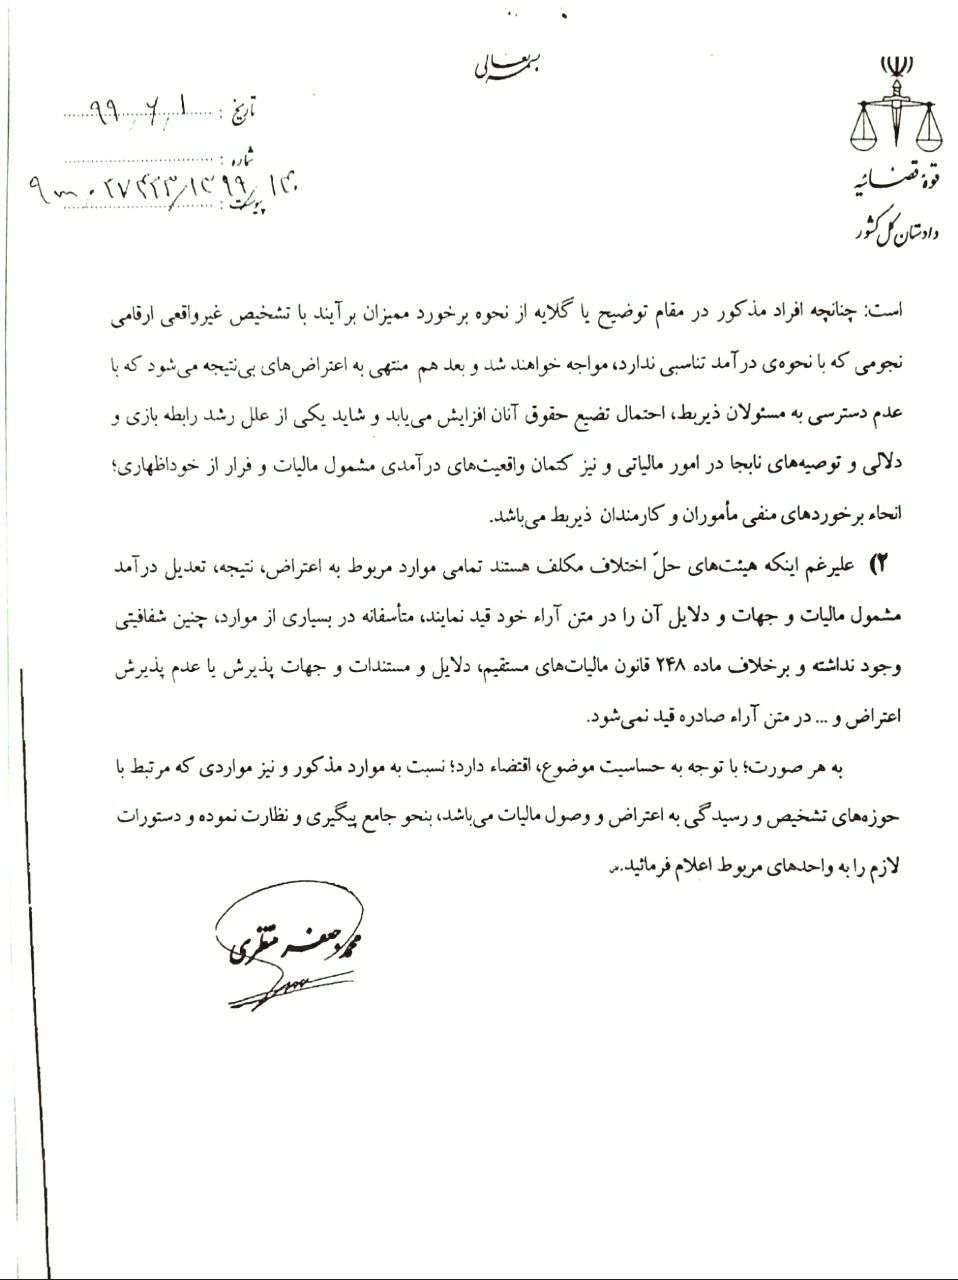 بسمه تعالی
قوهٔ قضائیه
دادستان کل کشور
تاریخ : ۹۹/۶/۱
شماره :
۱۴۰/۱۳۹۹/۲۷۴۲۳
پیوست :
است: چنانچه افراد مذکور در مقام توضیح یا گلایه از نحوه برخورد ممیزان برآیند با تشخیص غیرواقعی ارقامی
نجومی که با نحوه‌ی درآمد تناسبی ندارد، مواجه خواهند شد و بعد هم منتهی به اعتراض‌های بی‌نتیجه می‌شود که با
عدم دسترسی به مسئولان ذیربط، احتمال تضیع حقوق آنان افزایش می‌یابد و شاید یکی از علل رشد رابطه بازی و
دلالی و توصیه‌های نابجا در امور مالیاتی و نیز کتمان واقعیت‌های درآمدی مشمول مالیات و فرار از خوداظهاری؛
انحاء برخوردهای منفی مأموران و کارمندان ذیربط می‌باشد.
۲) علیرغم اینکه هیئت‌های حلّ اختلاف مکلف هستند تمامی موارد مربوط به اعتراض، نتیجه، تعدیل درآمد
مشمول مالیات و جهات و دلایل آن را در متن آراء خود قید نمایند، متأسفانه در بسیاری از موارد، چنین شفافیتی
وجود نداشته و برخلاف ماده ۲۴۸ قانون مالیات‌های مستقیم، دلایل و مستندات و جهات پذیرش یا عدم پذیرش
اعتراض و ... در متن آراء صادره قید نمی‌شود.
به هر صورت؛ با توجه به حساسیت موضوع، اقتضاء دارد؛ نسبت به موارد مذکور و نیز مواردی که مرتبط با
حوزه‌های تشخیص و رسیدگی به اعتراض و وصول مالیات می‌باشد، بنحو جامع پیگیری و نظارت نموده و دستورات
لازم را به واحدهای مربوط اعلام فرمائید.
محمد جعفر منتظری